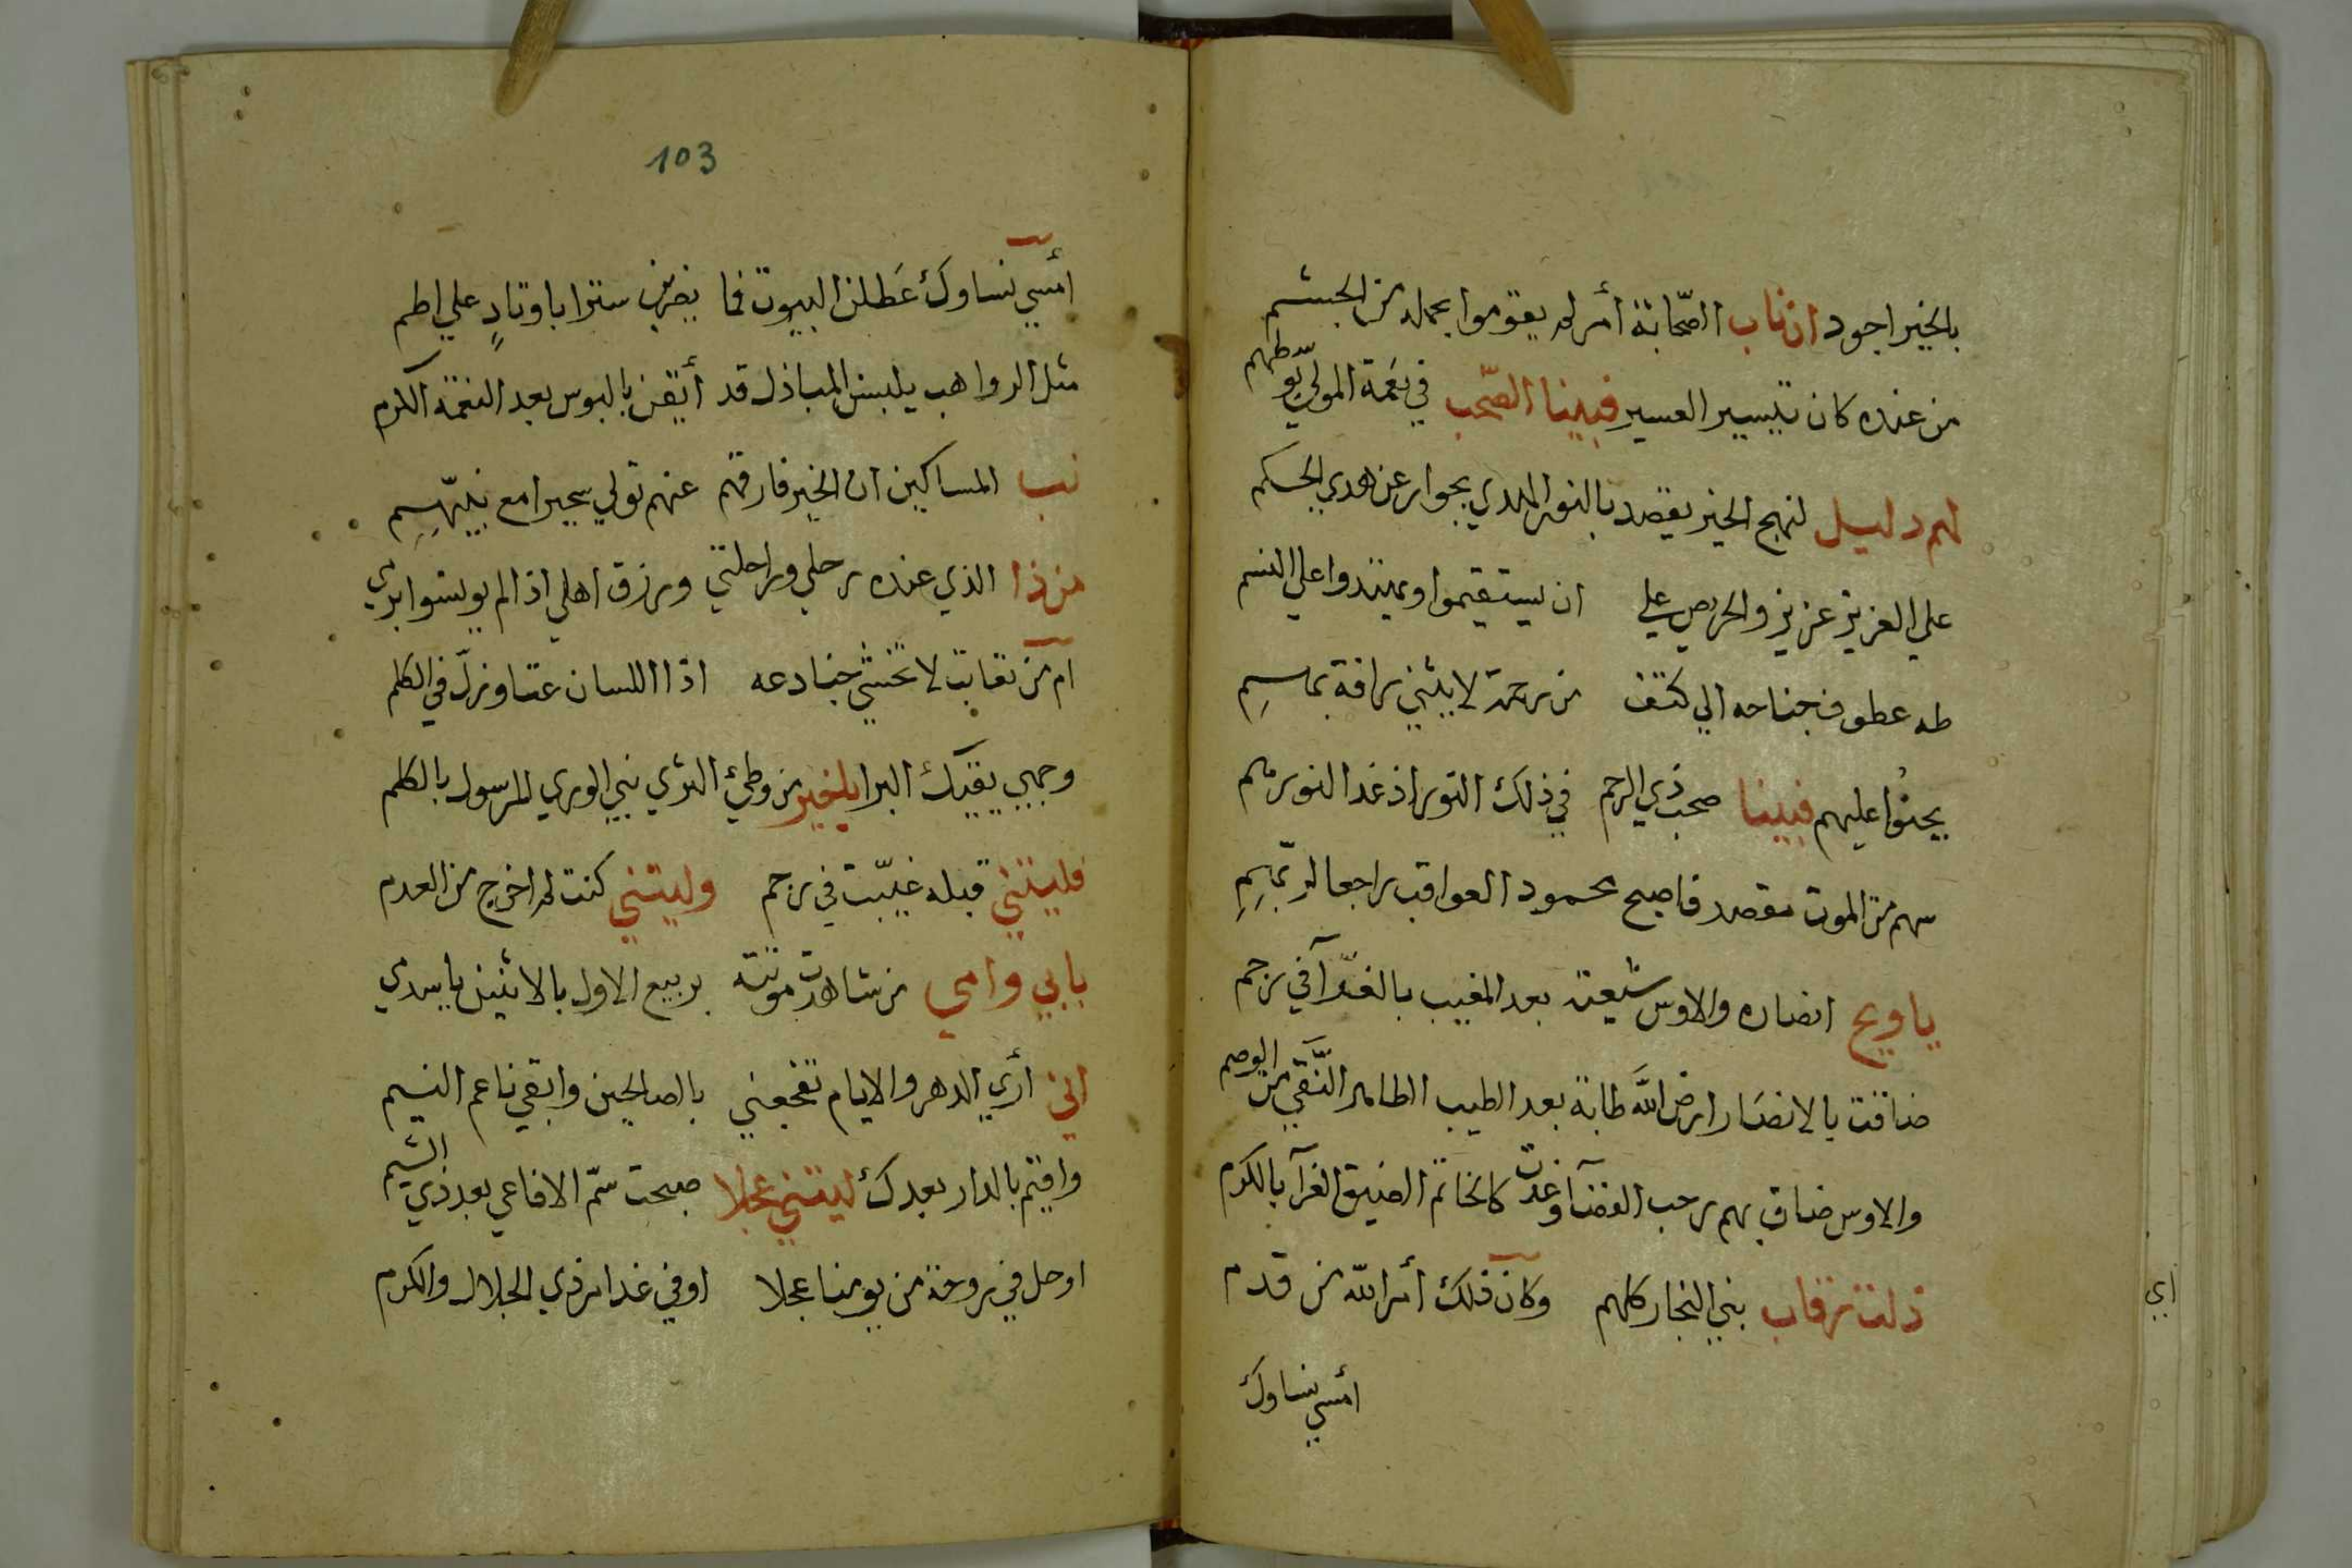 بالخير اجود ان ناب الصحابة أمر لم يقوموا بحمله من الجشم
من عنده كان تيسير العسير فبينا الصحب في نعمة المولي بوسطهم
لهم دليل لنهج الخير يقصد بالنور المهدي بجوار عن هدي الحكم
علي العزيز عزيز والحريص علي ان يستقيموا ويمتدوا علي النسم
طه عطوف جناحه الي كتف من رحمة لا يثني رافة بماسم
يحنوا عليهم فبينا صحب ذي الرحم في ذلك النور اذ غدا لنورهم
سهم من الموت مقصد فاصبح محمود العواقب راجعا لربهم
يا ويح انصاره والاوس شيعته بعد المغيب بالغبرآ في رجم
ضاقت بالانصار ارض الله طابة بعد الطيب الطاهر النقي من الوصم
والاوس ضاق بهم رحب الفضآ وغدت كالخاتم الضيق الغرآ بالكرم
ذلت رقاب بني النجار كلهم وكان ذلك أمر الله من قدم
أمسي نساوك
اي
103
أمسي نساوك عطلن البيوت فما يضربن سترا باوتاد علي اطم
مثل الرواهب يلبسن المباذل قد أيقن بالبوس بعد النعمة الكرم
نب المساكين ان الخير فارقهم عنهم تولي سحيرا مع نبيهم
من ذا الذي عنده رحلي وراحلتي ورزق اهلي اذا لم يونسوا بري
ام من نعاتب لا نخشي جنادعه اذا اللسان عتا وزل في الكلم
وجهي يقيك البرا يا خير من وطئ الثري نبي الوري للرسول بالكلم
فليتني قبله غيبت في رجم وليتني كنت لم اخرج من العدم
بابي وامي من شاهدت موتته بربيع الاول بالاثنين يا سدي
اني أري الدهر والايام تفجعني بالصالحين وابقي ناعم النسيم
واقيم بالدار بعدك ليتني عجلا صبحت سم الافاعي بعد ذي الشيم
اوحل في روحة من يومنا عجلا او في غد امر ذي الجلال والكرم